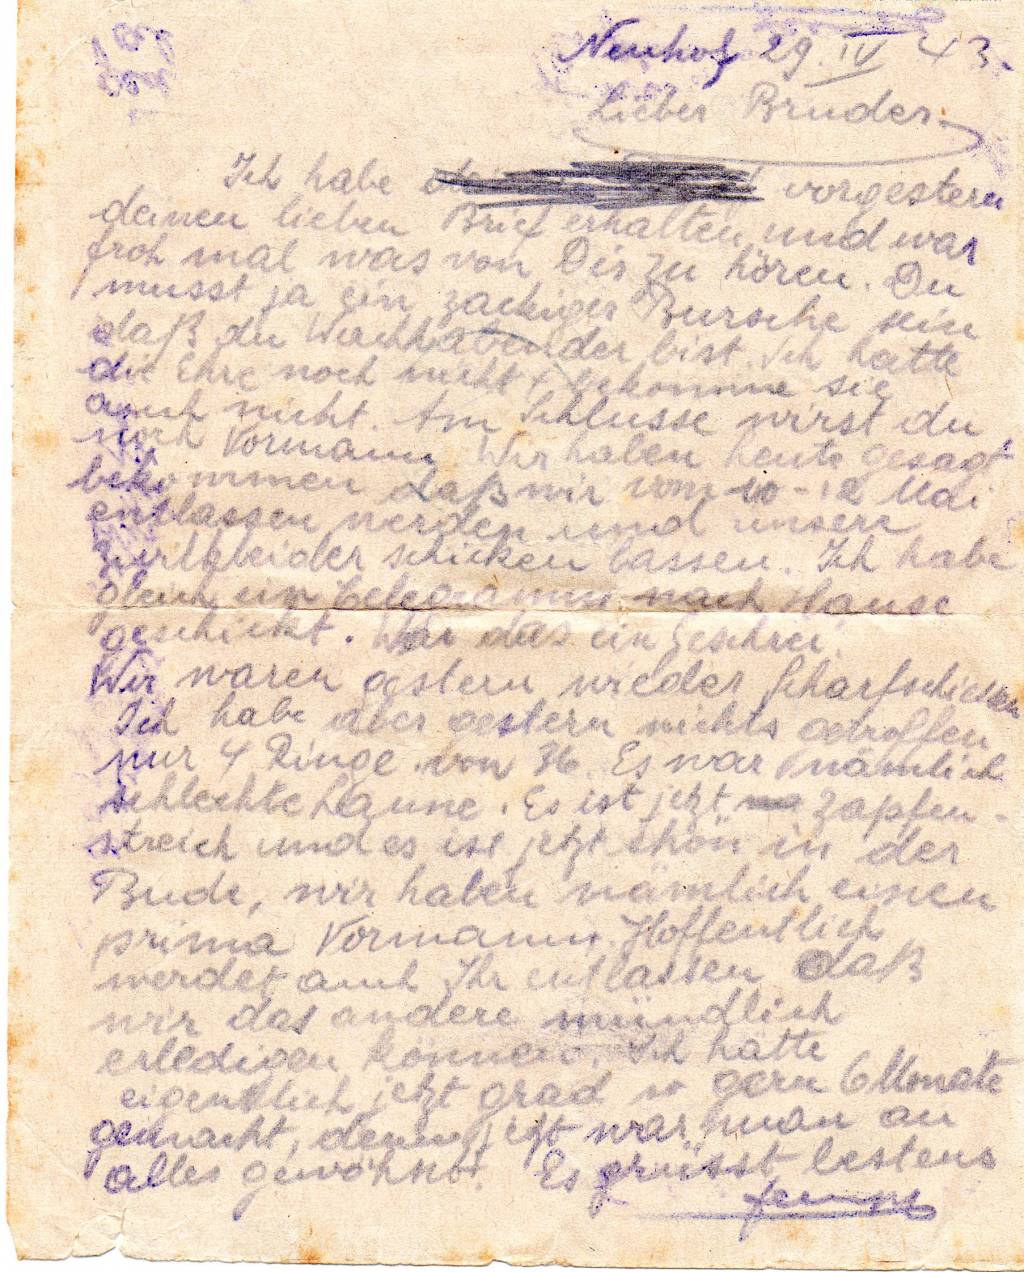 Neuhof 29. IV 43.
Lieber Bruder.
Ich habe vorgestern
deinen lieben Brief erhalten und war
froh mal was von Dir zu hören. Du
musst ja ein zackiger Bursche sein
daß du Wachhabender bist. Ich hatte
die Ehre noch nicht u. bekomme sie
auch nicht. Am Schlusse wirst du
noch Vormann. Wir haben heute gesagt
bekommen daß wir vom 10-12 Mai
entlassen werden und unsere
Zivilkleider schicken lassen. Ich habe
gleich ein Telegramm nach Hause
geschickt. War das ein Geschrei.
Wir waren gestern wieder Scharfschiessen
Ich habe aber gestern nichts getroffen
nur 4 Ringe von 36. Es war nämlich
schlechte Laune. Es ist jetzt Zapfen-
streich und es ist jetzt schön in der
Bude, wir haben nämlich einen
prima Vormann. Hoffentlich
werdet auch Ihr entlassen daß
wir das andere mündlich
erledigen können. Ich hätte
eigentlich jetzt grad so gern 6 Monate
gemacht, denn jetzt war man an
alles gewöhnt. Es grüsst bestens